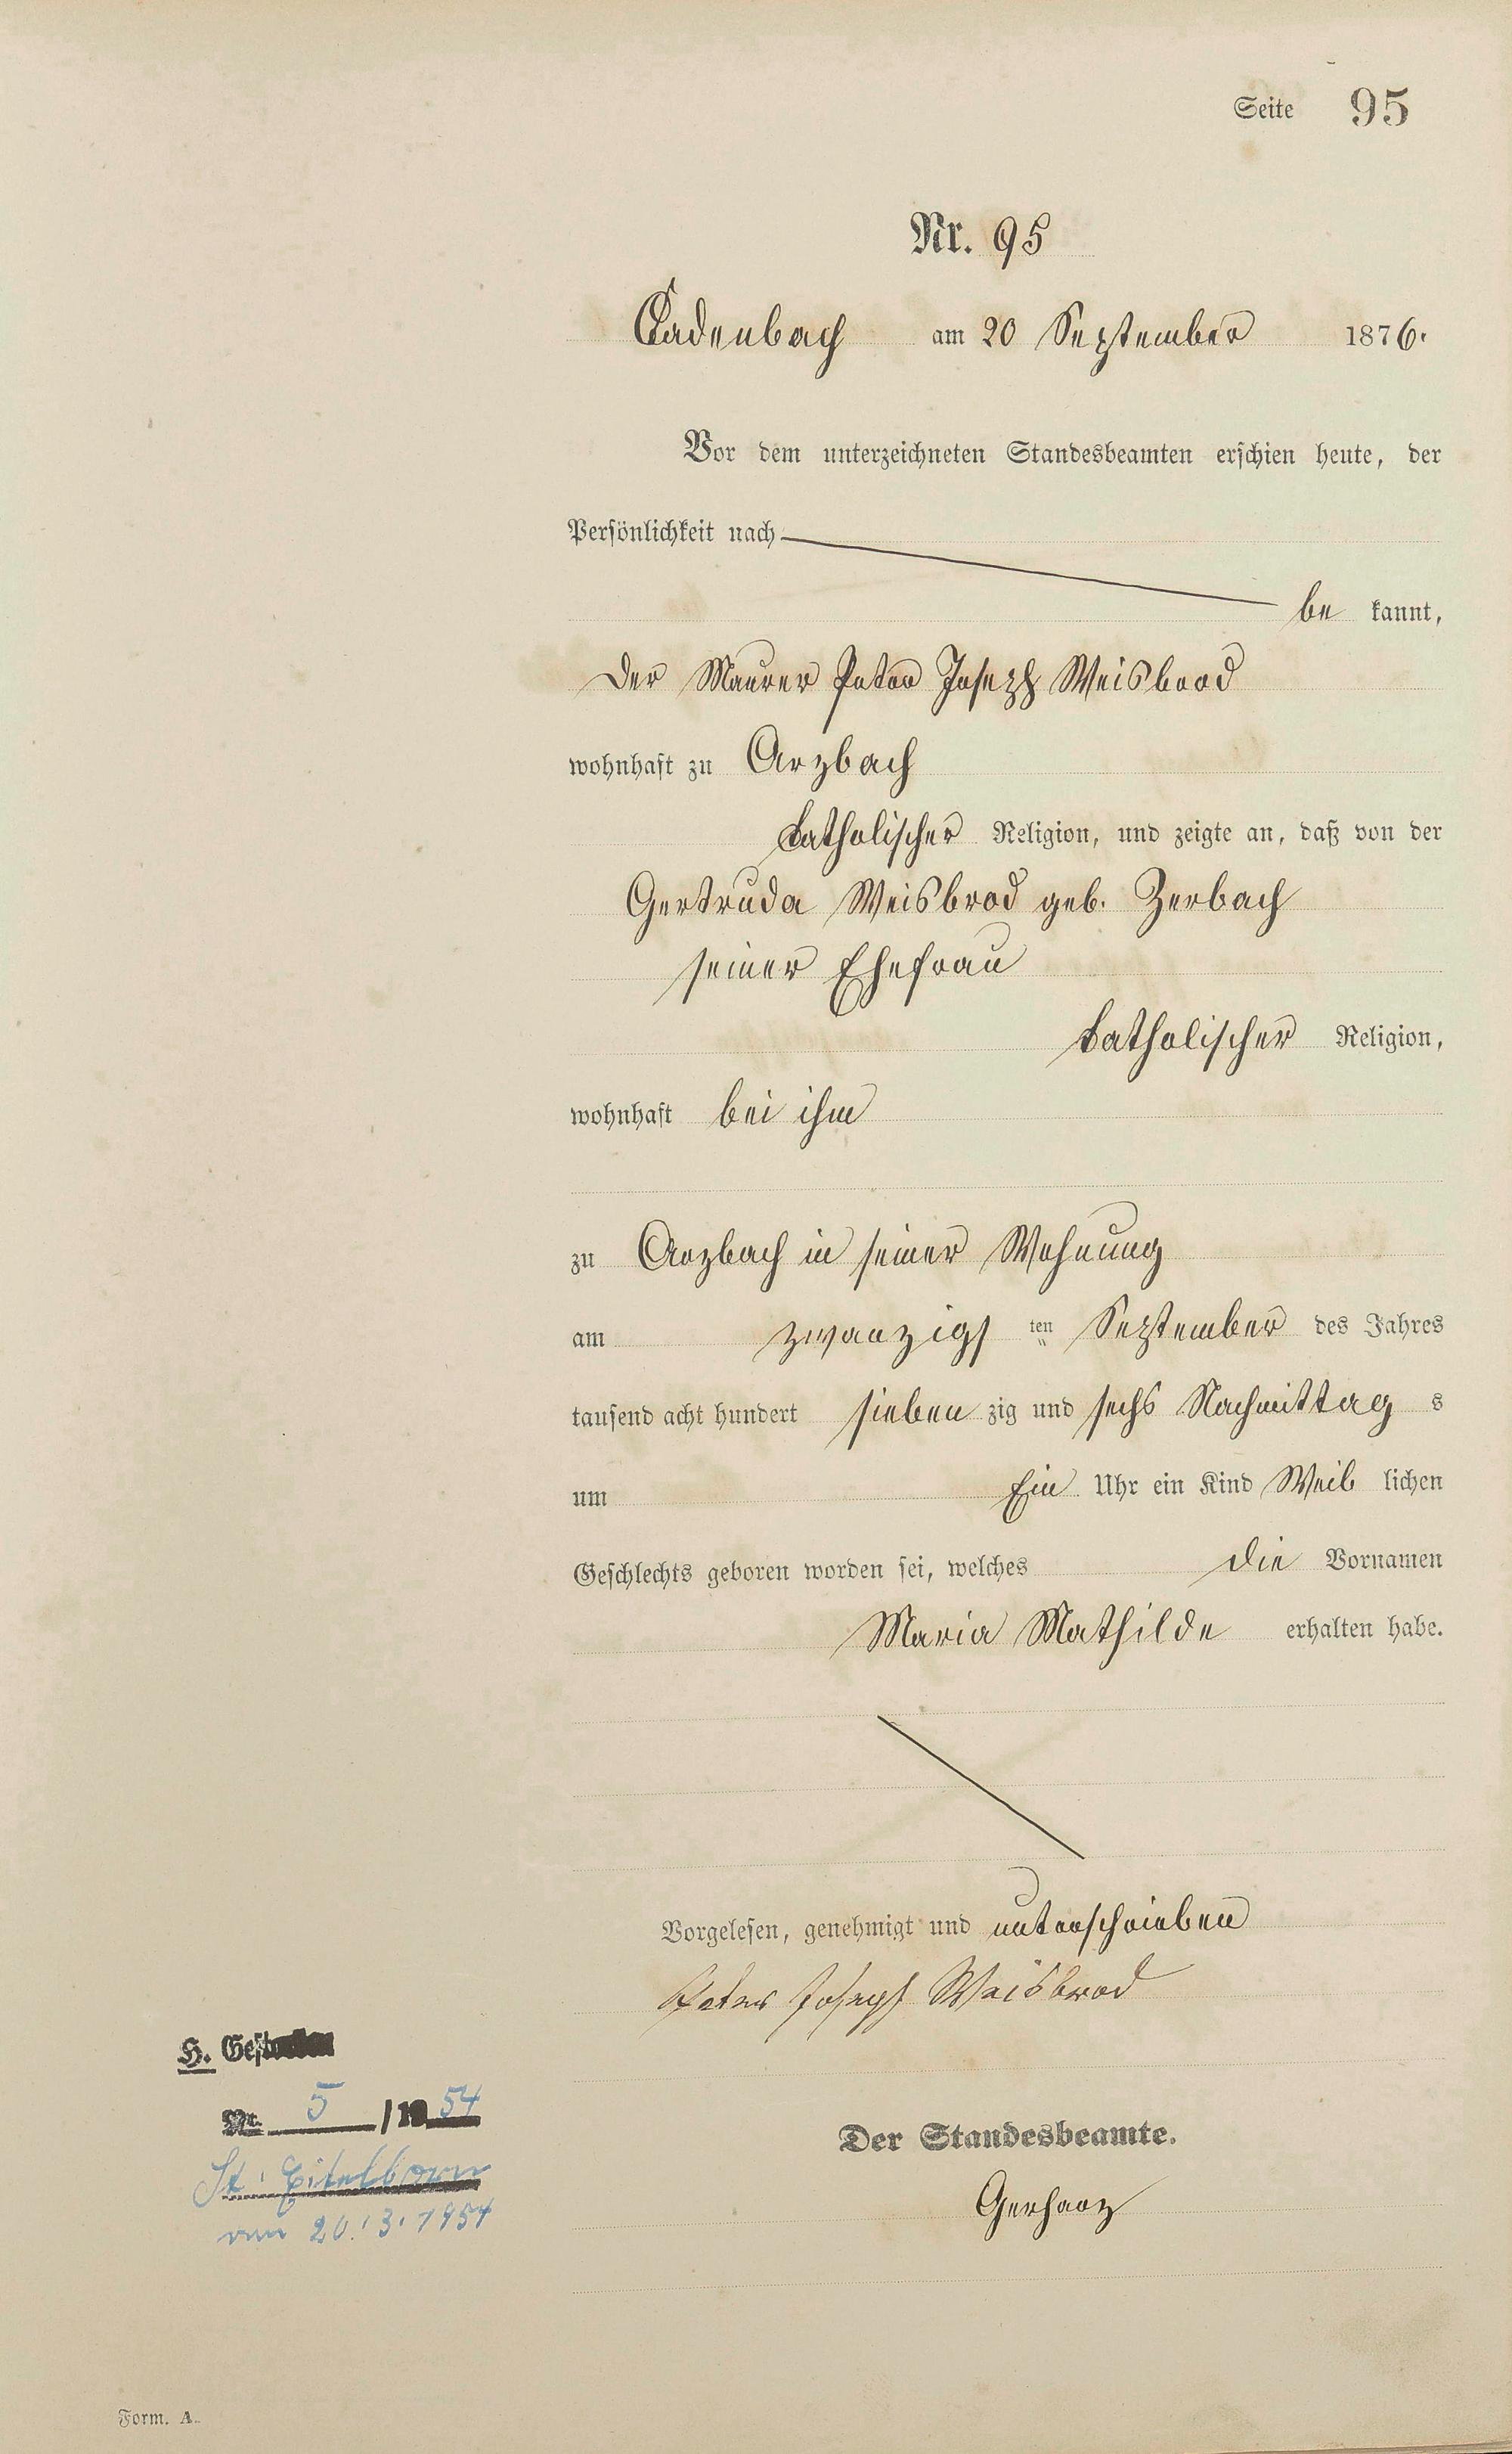 Seite 95
Nr. 95
Cadenbach am 20 September 1876.
Vor dem unterzeichneten Standesbeamten erschien heute, der
Persönlichkeit nach
be kannt,
der Maurer Peter Joseph Weisbrod
wohnhaft zu Arzbach
katholischer Religion, und zeigte an, daß von der
Gertruda Weisbrod geb. Zerbach
seiner Ehefrau
katholischer Religion,
wohnhaft bei ihm
zu Arzbach in seiner Wohnung
am zwanzigs ten September des Jahres
tausend acht hundert sieben zig und sechs Nachmittag s
um Ein Uhr ein Kind Weib lichen
Geschlechts geboren worden sei, welches die Vornamen
Maria Mathilde erhalten habe.
Vorgelesen, genehmigt und unterschrieben
Peter Joseph Weisbrod
H. Gest
Nr. 5 / 19 54
St. Eitelborn
vom 20.3.1954
Der Standesbeamte.
Gerharz
Form. A.